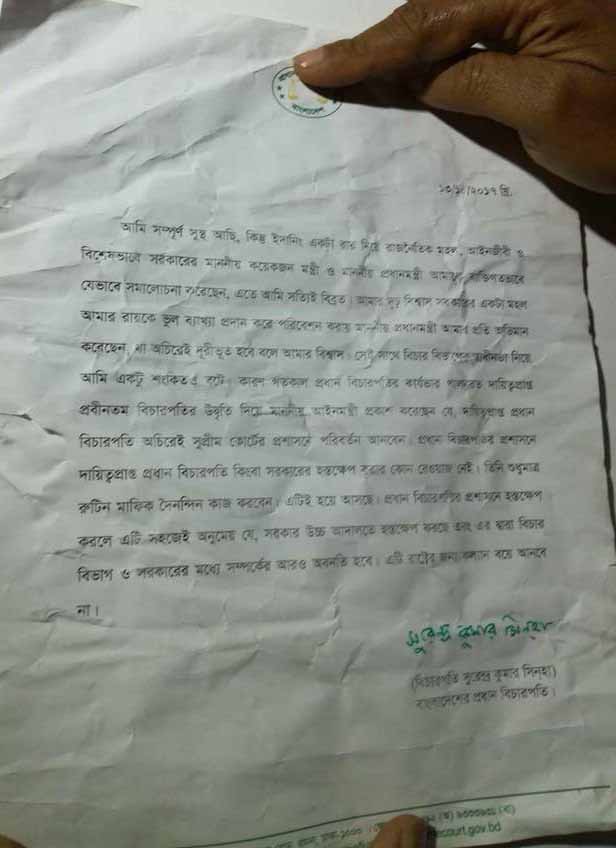 বাংলাদেশ
১৩/১০/২০১৭ খ্রি.
আমি সম্পূর্ণ সুস্থ আছি, কিন্তু ইদানিং একটা রায় নিয়ে রাজনৈতিক মহল, আইনজীবী ও
বিশেষভাবে সরকারের মাননীয় কয়েকজন মন্ত্রী ও মাননীয় প্রধানমন্ত্রী আমাকে ব্যক্তিগতভাবে
যেভাবে সমালোচনা করেছেন, এতে আমি সত্যিই বিব্রত। আমার দৃঢ় বিশ্বাস সরকারের একটা মহল
আমার রায়কে ভুল ব্যাখ্যা প্রদান করে পরিবেশন করায় মাননীয় প্রধানমন্ত্রী আমার প্রতি অভিমান
করেছেন, যা অচিরেই দূরীভূত হবে বলে আমার বিশ্বাস। সেই সাথে বিচার বিভাগের স্বাধীনতা নিয়ে
আমি একটু শংকিতও বটে। কারণ গতকাল প্রধান বিচারপতির কার্যভার পালনরত দায়িত্বপ্রাপ্ত
প্রবীনতম বিচারপতির উদ্বৃতি দিয়ে মাননীয় আইনমন্ত্রী প্রকাশ করেছেন যে, দায়িত্বপ্রাপ্ত প্রধান
বিচারপতি অচিরেই সুপ্রীম কোর্টের প্রশাসনে পরিবর্তন আনবেন। প্রধান বিচারপতির প্রশাসনে
দায়িত্বপ্রাপ্ত প্রধান বিচারপতি কিংবা সরকারের হস্তক্ষেপ করার কোন রেওয়াজ নেই। তিনি শুধুমাত্র
রুটিন মাফিক দৈনন্দিন কাজ করবেন। এটিই হয়ে আসছে। প্রধান বিচারপতির প্রশাসনে হস্তক্ষেপ
করলে এটি সহজেই অনুমেয় যে, সরকার উচ্চ আদালতে হস্তক্ষেপ করছে এবং এর দ্বারা বিচার
বিভাগ ও সরকারের মধ্যে সম্পর্কের আরও অবনতি হবে। এটি রাষ্ট্রের জন্য কল্যান বয়ে আনবে
না।
সুরেন্দ্র কুমার সিনহা
(বিচারপতি সুরেন্দ্র কুমার সিনহা)
বাংলাদেশের প্রধান বিচারপতি।
court.gov.bd